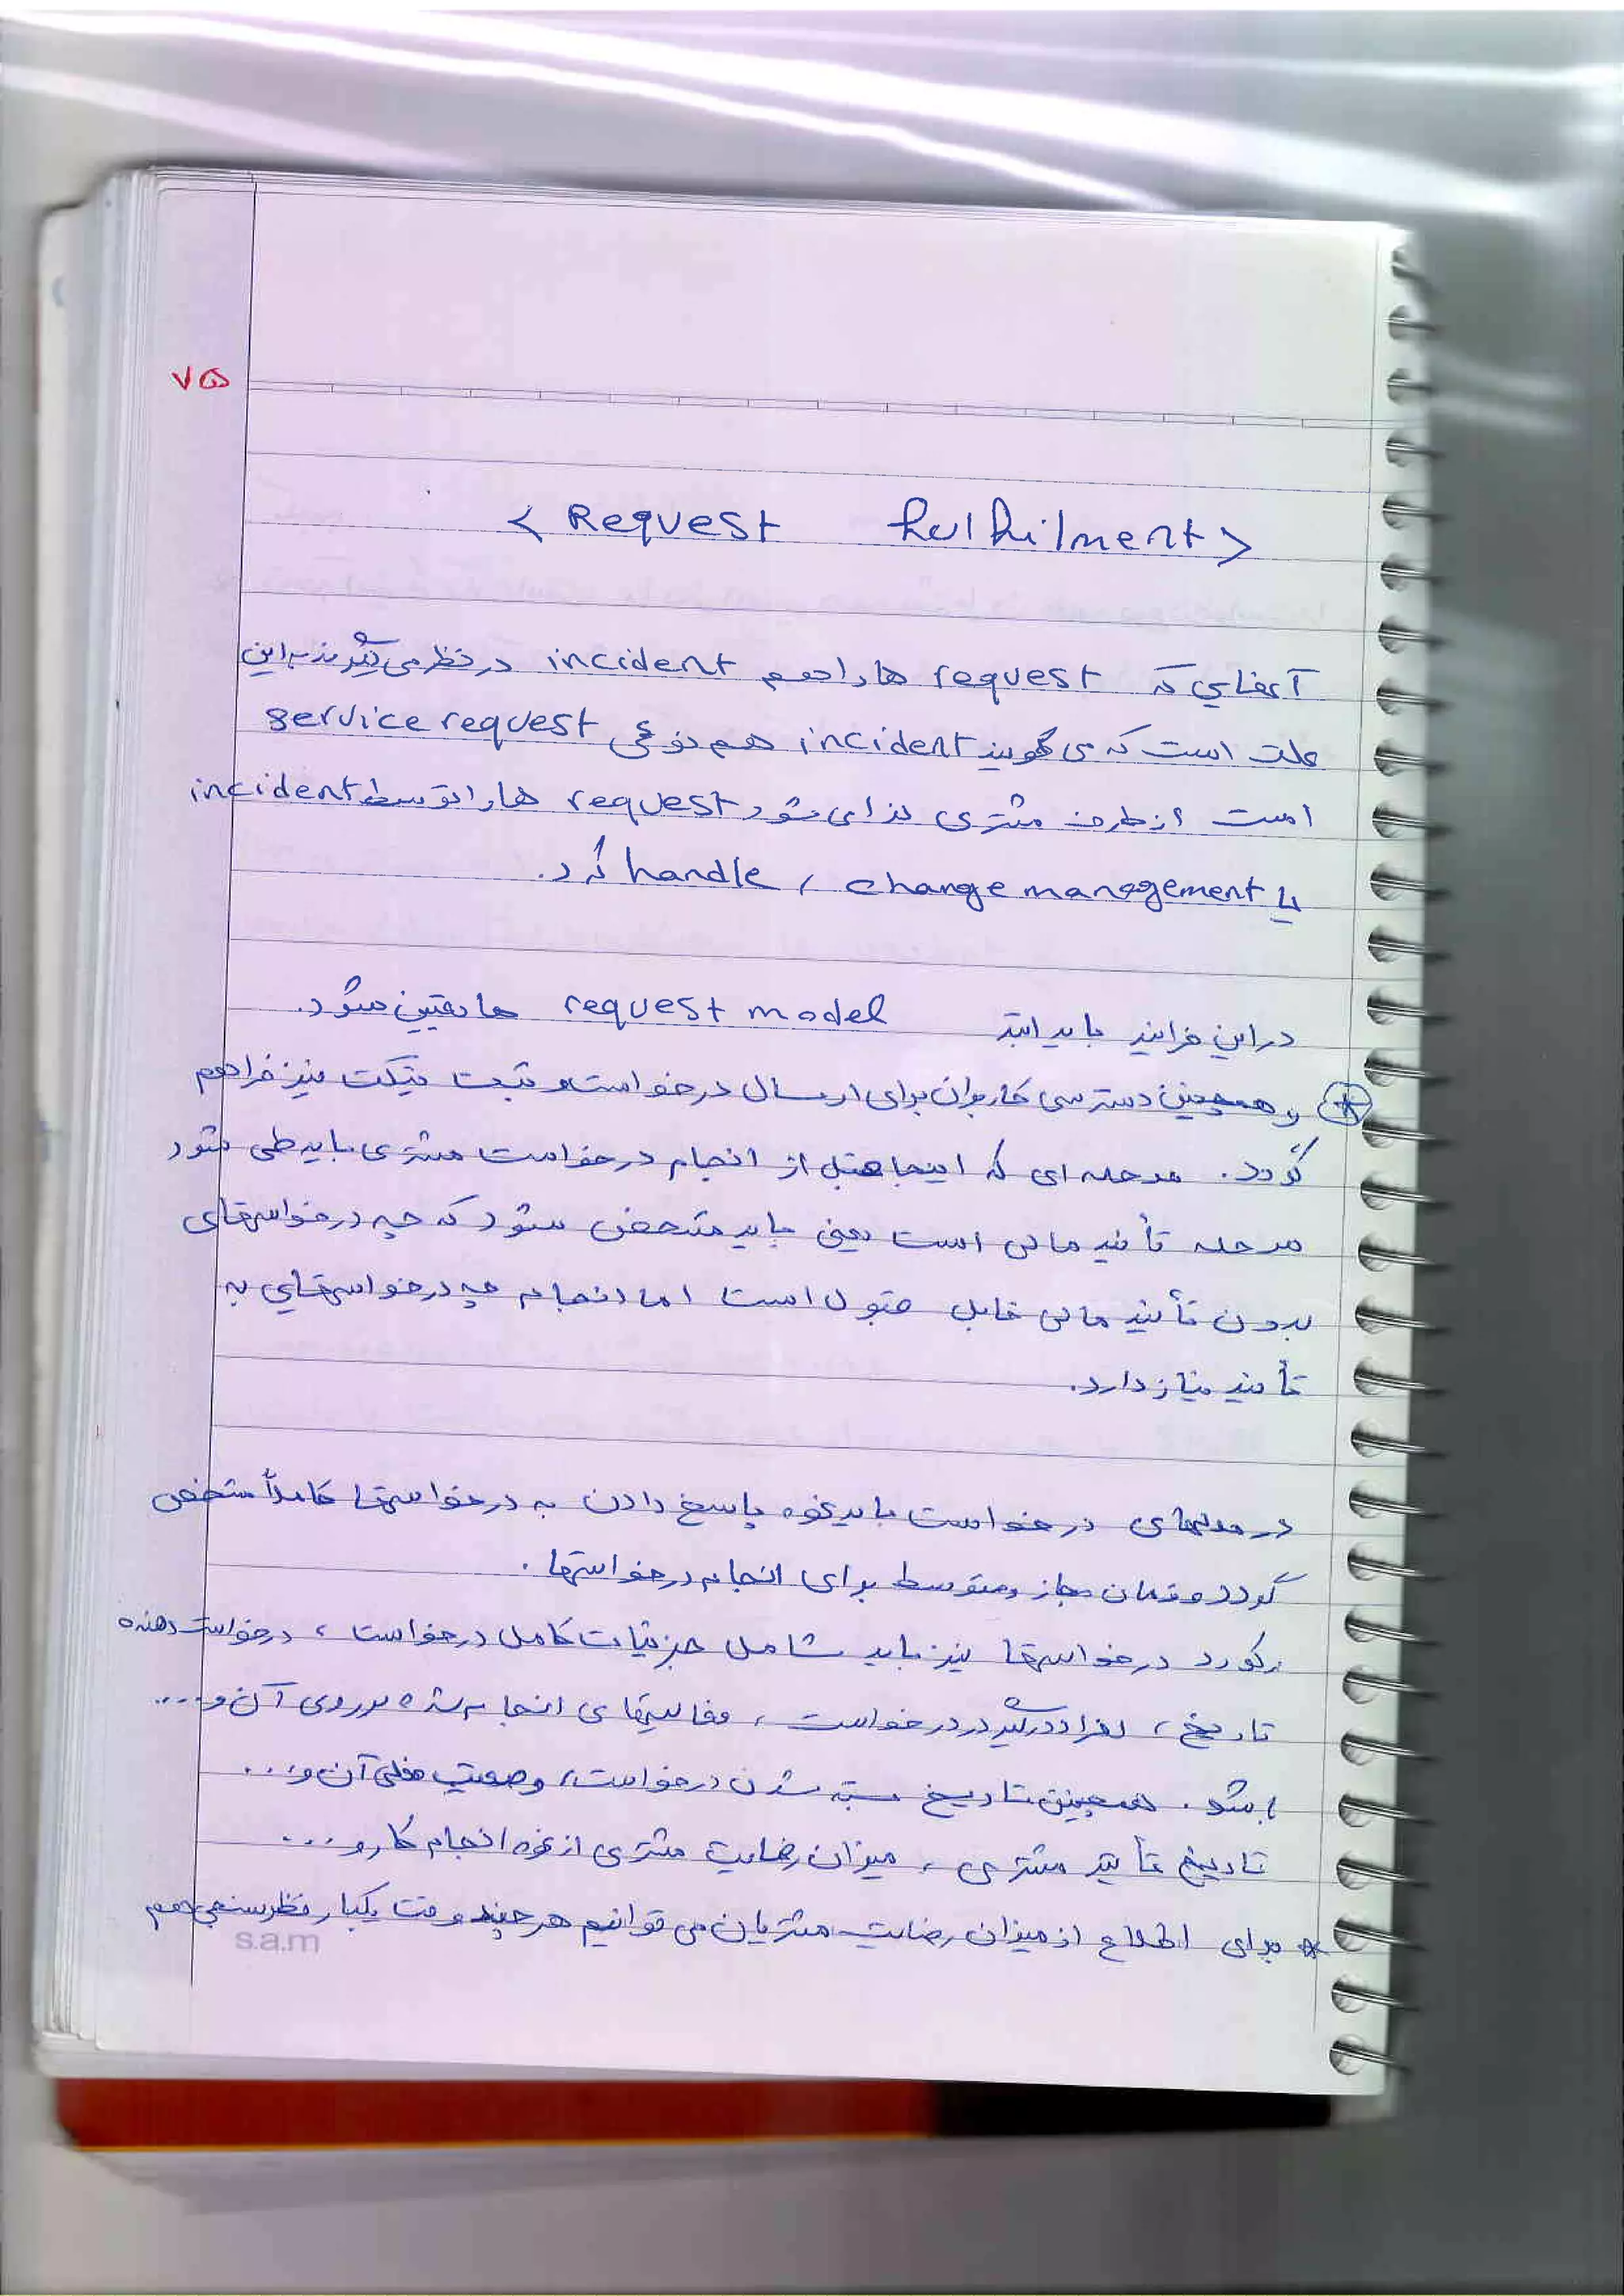 ۷۵
< Request fulfilment >
آنهایی که request ها را هم incident در نظر می‌گیرند به این
علت است که می گویند incident هم نوعی service request
است از طرف مشتری لذا می شود request ها را توسط incident
یا change management، handle کرد.
در این فرایند باید ابتدا request model ها تعیین شود.
و همچنین دسترسی کاربران برای ارسال درخواست و ثبت تیکت نیز فراهم
گردد. مرحله ای که اینجا قبل از انجام درخواست مشتری باید طی شود
مرحله تأئید مالی است یعنی باید مشخص شود که چه درخواستهای
بدون تأئید مالی قابل قبول است اما انجام چه درخواستهایی به
تأئید نیاز دارد.
در مدلهای درخواست باید نحوه پاسخ دادن به درخواستها کاملاً مشخص
گردد و زمان مجاز و متوسط برای انجام درخواستها.
رکورد درخواستها نیز باید شامل جزئیات کامل درخواست، درخواست دهنده
تاریخ، افراد درگیر در درخواست، فعالیتهای انجام شده بر روی آن و....
باشد. همچنین تاریخ بسته شدن درخواست، وضعیت فعلی آن و...
تاریخ تأئید مشتری، میزان رضایت مشتری از نحوه انجام کار و...
* برای اطلاع از میزان رضایت مشتریان می توانیم هر چند وقت یکبار نظرسنجی هم
s.a.m